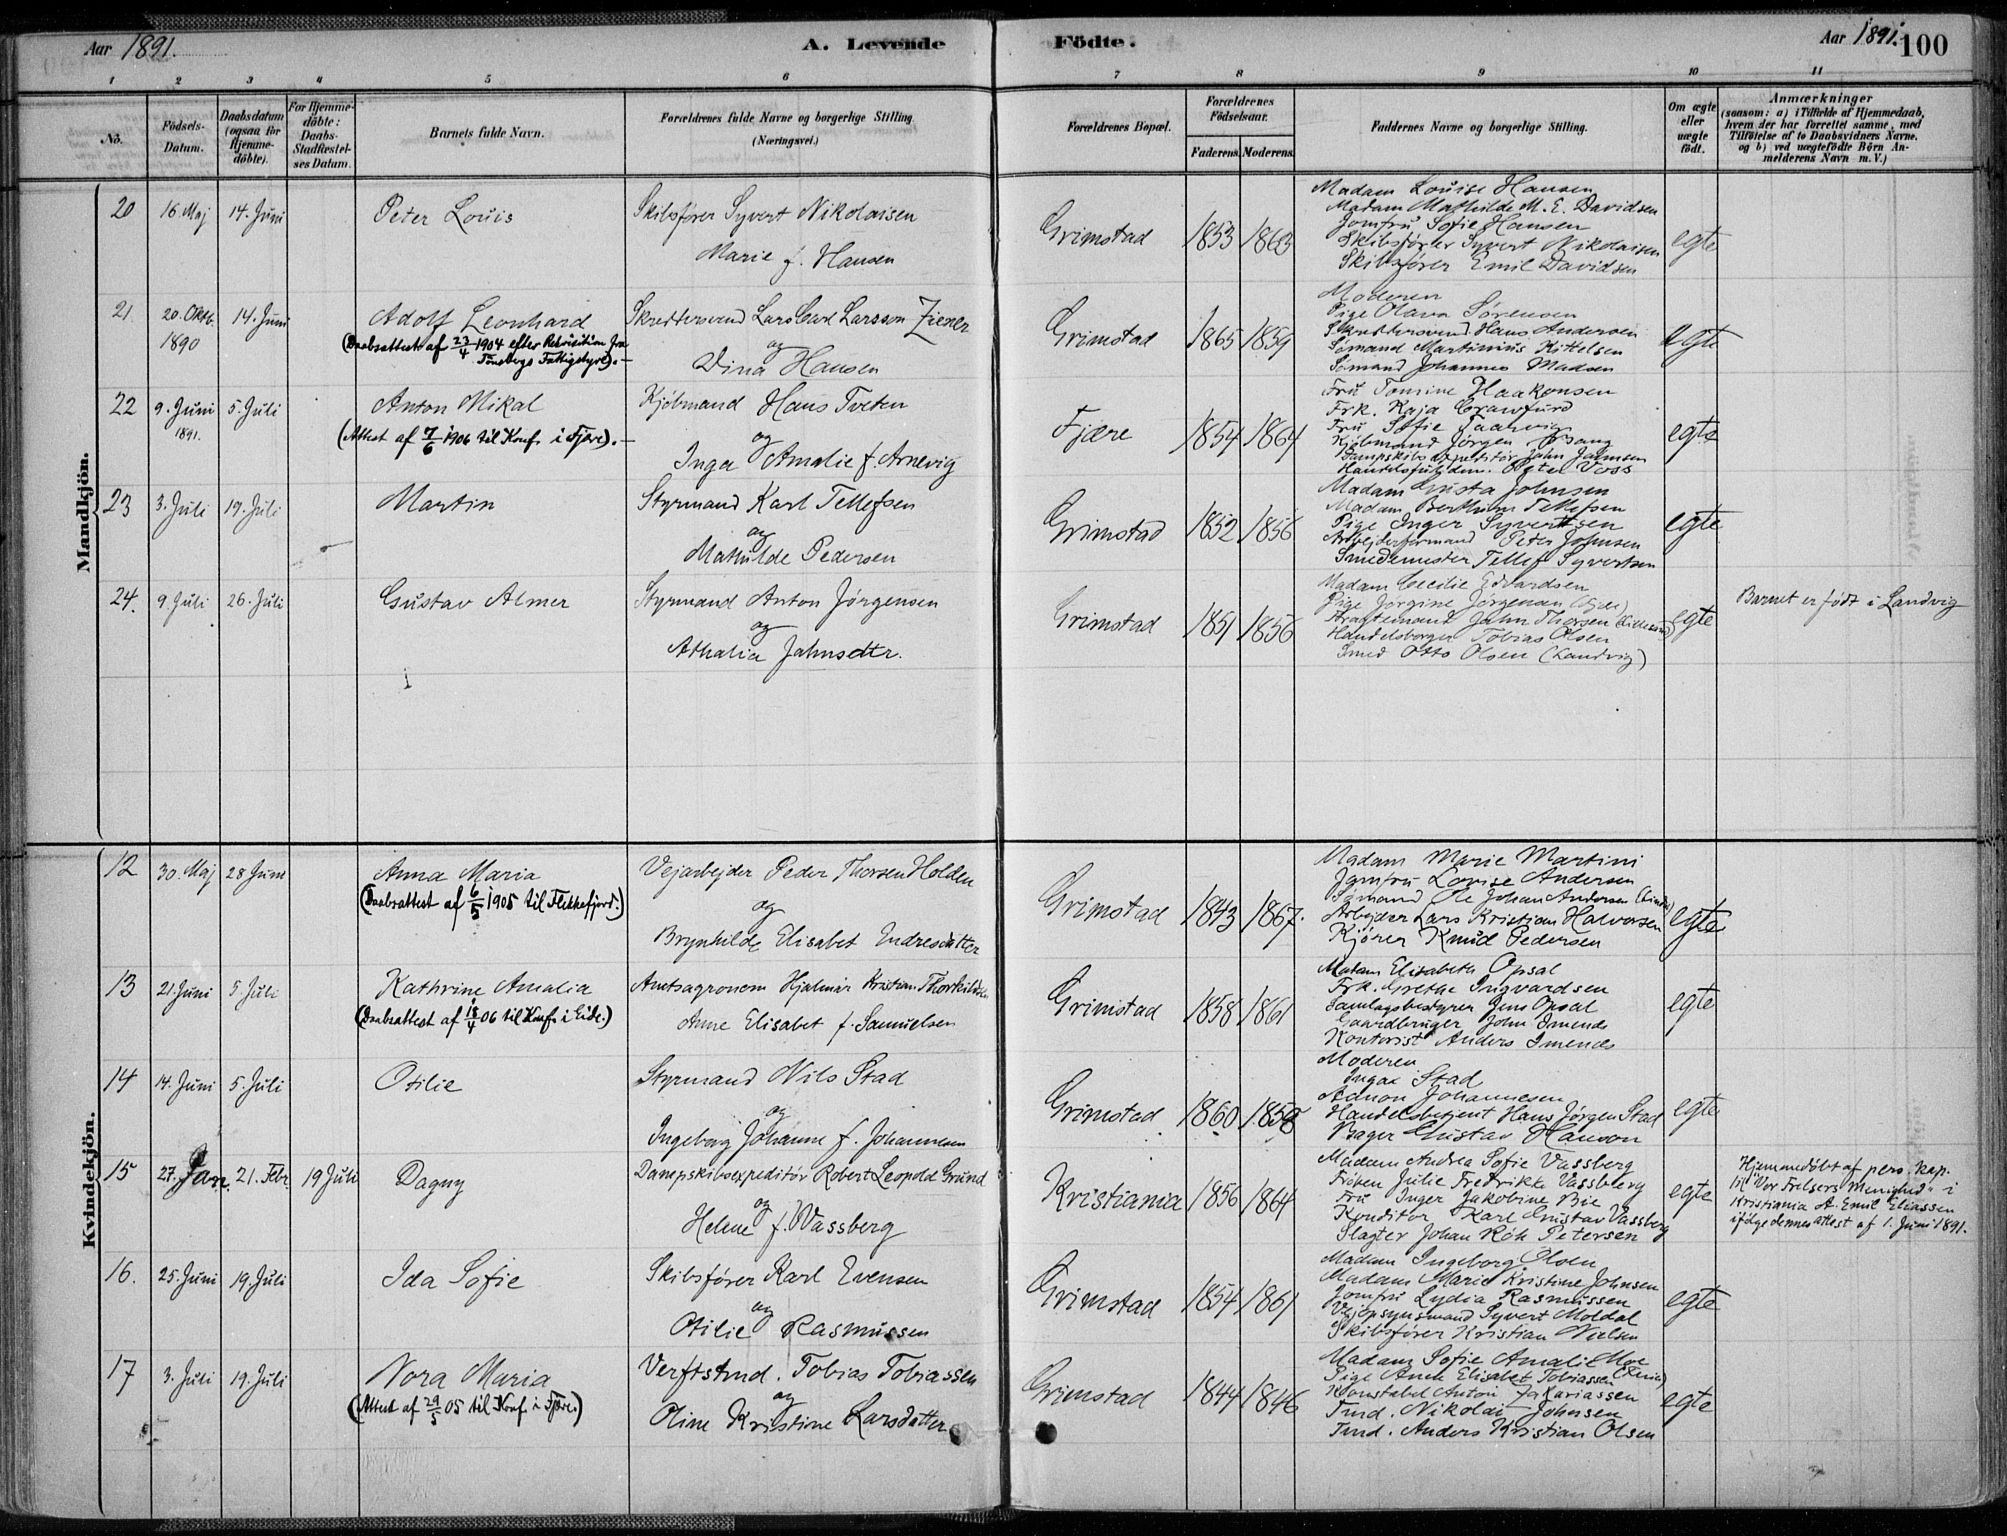 Aar 1891. A. Levende Födte. Aar 1891. 100
1 2 3 4 5 6 7 8 9 10 11
No.
Födsels-Datum.
Daabsdatum (ogsaa for Hjemme-döbte).
For Hjemme-döbte: Daabs-Stadfæstel-ses Datum.
Barnets fulde Navn.
Forældrenes fulde Navne og borgerlige Stilling (Næringsvei.)
Forældrenes Bopæl.
Forældrenes Födselsaar.
Faderens. Moderens.
Faddernes Navne og borgerlige Stilling.
Om ægte eller uægte födt.
Anmærkninger
(saasom: a) i Tilfælde af Hjemmedaab, hvem der har forrettet samme, med Tilföielse af to Daabsvidners Navne, og b) ved uægtefödte Börn An-melderens Navn m. V.)
Mandkjön.
20 16. Maj 14. Juni Peter Louis
Skibsfører Syvert Nikolaisen
Marie f. Hansen
Grimstad 1853 1863
Madam Louise Hansen
Madam Mathilde M. E. Davidsen
Jomfru Sofie Hansen
Skibsfører Syvert Nikolaisen
Skibsfører Emil Davidsen
egte
21. 20. Oktb. 1890 14. Juni Adolf Leonhard
(Daabsattest af 23/4 1904 efter Rekvisition fra
Tönsbergs Fattigstyre). —
Skreddersvend Lars Carl Larsson Ziener
og
Dina Hansen
Grimstad 1865 1859
Moderen
Pige Olava Sørensen
Skreddersvend Hans Andersen
Sømand Martinius Kittelsen
Sømand Johannes Madsen
egte
22 9. Juni 1891. 5. Juli Anton Mikal
(Attest af 7/6 1906 til Konf. i Fjære). —
Kjöbmand Hans Tveten
og
Inga Amalie f. Arnevig
Fjære 1854 1864
Fru Tomine Haakonsen
Frk. Kaja Crawfurd
Fru Sofie
Kjöbmand Jörgen
Dampskibsexpeditör John Johnsen
Peter Voss
egte
23 3. Juli 19. Juli Martin
Styrmand Karl Tellefsen
og
Mathilde Pedersen
Grimstad 1852 1856
Madam Gusta Johnsen
Madam Tellefsen
Pige Inger Syvertsen
Arbejderformand Peter Johnsen
Smedemester Tellef Syvertsen
egte
24. 9. Juli 26. Juli Gustav Almer
Styrmand Anton Jörgensen
og
Athalia Jahnsdtr.
Grimstad 1851 1856
Madam Cecilie Edvardsen
Pige Jörgine Jörgensen
Jahn Thorsen
Handelsborger Tobias Olsen
Smed Otto Olsen (Landvig)
egte
Barnet er födt i Landvig
Kvindekjön.
12 30. Maj 28 Juni Anna Maria
(Daabsattest af 6/5 1905 til Flekkefjord.)
Vejarbejder Peder Thorsen Holden
og
Brynhilde Elisabet Endresdatter
Grimstad 1843 1867.
Madam Marie Martini
Jomfru Lovise Andersen
Sømand Ole Johan Andersen
Arbejder Lars Kristian Halvorsen
Kjörer Knud Pedersen
egte
13 21. Juni 5. Juli Kathrine Amalia
(Daabsattest af 18/4 06 til Konf. i Eide.)
Amtsagronom Hjalmar Kristian Thorkildsen
Anne Elisabet f. Samuelsen
Grimstad 1858 1861
Madam Elisabeth Opsal
Frk. Grethe Ingvardsen
Samlagsbestyrer Jens Opsal
Gaardbruger John Imenes
Kontorist Anders Imenes
egte
14 14. Juni 5. Juli Otilie
Styrmand Nils Stad
og
Ingeborg Johanne f. Johannesen
Grimstad 1860 1858
Moderen
Inga Stad
Johannesen
Handelsbetjent Hans Jörgen Stad
Bager Gustav Hanson
egte
15 27. Jan. 21. Febr. 19 Juli Dagny
Dampskibsexpeditör Robert Leopold Grund
og
Helene f. Wassberg
Kristiania 1856 1864
Madam Andrea Sofie Vassberg
Fröken Julie Fredrikke Vassberg
Fru Inger Jakobine Bie
Konditor Karl Gustav Vassberg
Slagter Johan Petersen
egte
Hjemmedöbt af pers. kap.
til "Vor Frelsers Menighed" i
Kristiania A. Emil Eliassen
ifölge dennes attest af 1. Juni 1891.
16. 25. Juni 19. Juli Ida Sofie
Skibsfører Karl Evensen
og
Otilie Rasmussen
Grimstad 1854 1861
Madam Ingeborg Olsen
Madam Marie Kristine Johnsen
Jomfru Lydia Rasmussen
Vejopsynsmand Syvert Moldal
Skibsfører Kristian Nielsen
egte
17 3. Juli 19. Juli Nora Maria
(Attest af 29/5 05 til Konf. i Fjære.)
Verftstmd. Tobias Tobiassen
og
Oline Kristine Larsdatter
Grimstad 1844 1846
Madam Sofie Amalie Moe
Pige Anne Elisabet Tobiassen
Konstabel Anton Zakariassen
Tmd. Nikolai Johnsen
Tmd. Anders Kristian Olsen
egte